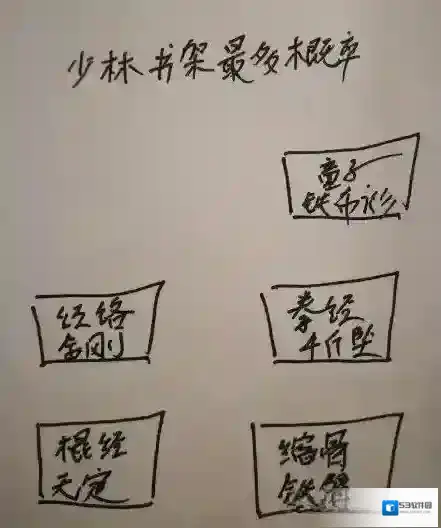 少林书架最多概率
童子一
铁布衫
经络
金刚
拳经
千斤坠
棍经
无定
缩骨
铁臂
53软件园